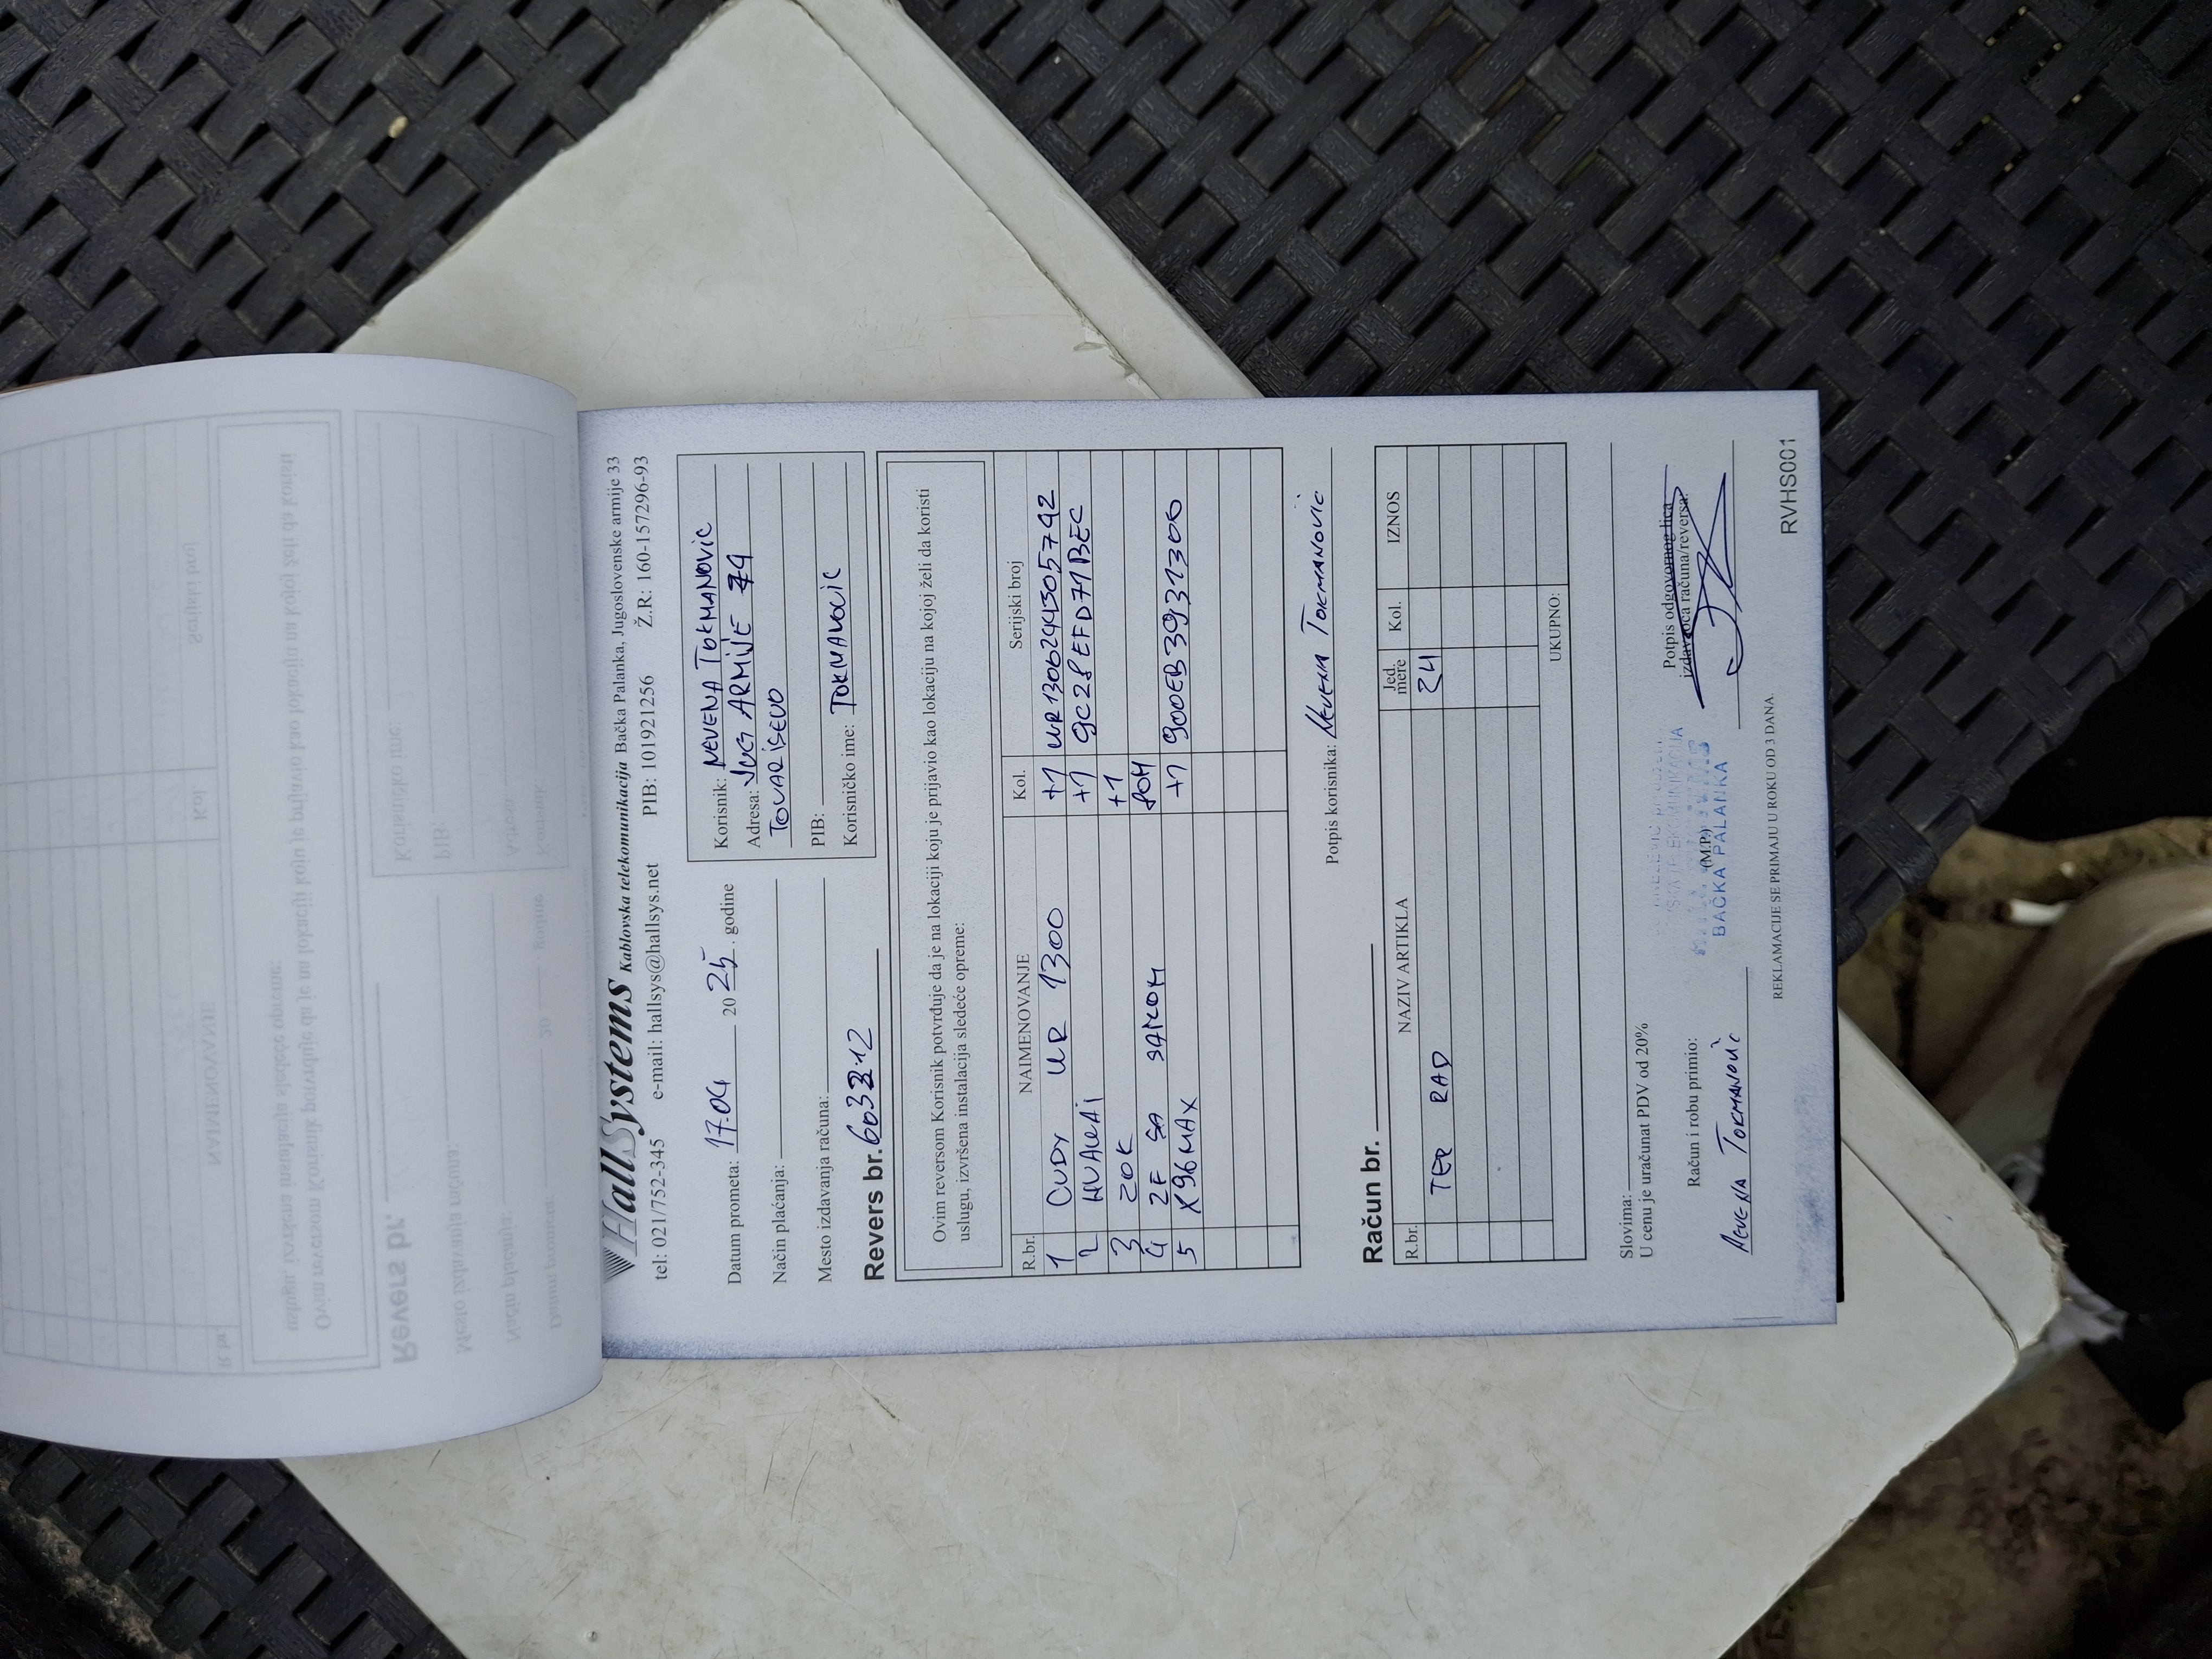 HallSystems Kablovska telekomunikacija Bačka Palanka, Jugoslovenske armije 33
tel: 021/752-345 e-mail: hallsys@hallsys.net PIB: 101921256 Ž.R: 160-157296-93
Datum prometa: 17.04 2025. godine
Način plaćanja:
Mesto izdavanja računa:
Korisnik: NEVENA TOKMANOVIC
Adresa: JUG ARMIJE 74
TOVARISEVO
PIB:
Korisničko ime: TOKMAVOCIC
Revers br. 603212
Ovim reversom Korisnik potvrđuje da je na lokaciji koju je prijavio kao lokaciju na kojoj želi da koristi
uslugu, izvršena instalacija sledeće opreme:
R.br. NAIMENOVANJE Kol. Serijski broj
1 CUDY WR 1300 +1 WR1306244305742
2 HUAWAI +1 9C28EFD71BEC
3 ZOK +1
4 2F SA SAJLOM 80M
5 X96MAX +1 900EB3931300
Potpis korisnika: NEVENA TOKMANOVIC
Račun br.
R.br. NAZIV ARTIKLA Jed. mere Kol. IZNOS
TER RAD 2H
UKUPNO:
Slovima:
U cenu je uračunat PDV od 20%
Račun i robu primio:
NEVENA TOKMANOVIC
(M.P.)
BAČKA PALANKA
Potpis odgovornog lica
izdavaoca računa/reversa:
REKLAMACIJE SE PRIMAJU U ROKU OD 3 DANA.
RVHS001